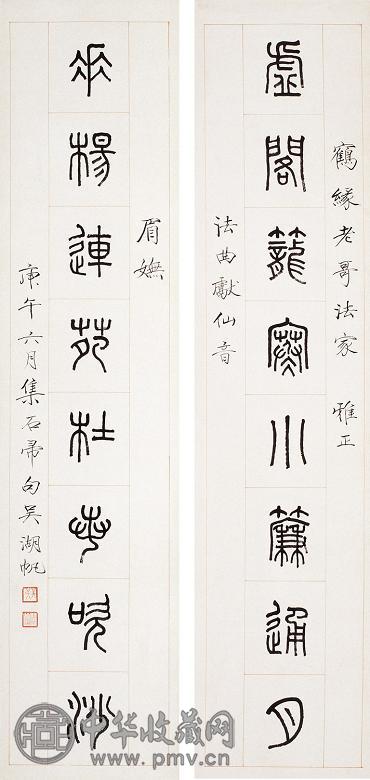 鶴緣老哥法家 雅正
虛閣籠寒小簾通月
法曲獻仙音
眉嫵
垂楊連苑杜若吹沙
庚午六月集石帚句吴湖帆
中华收藏网
www.pmv.cn